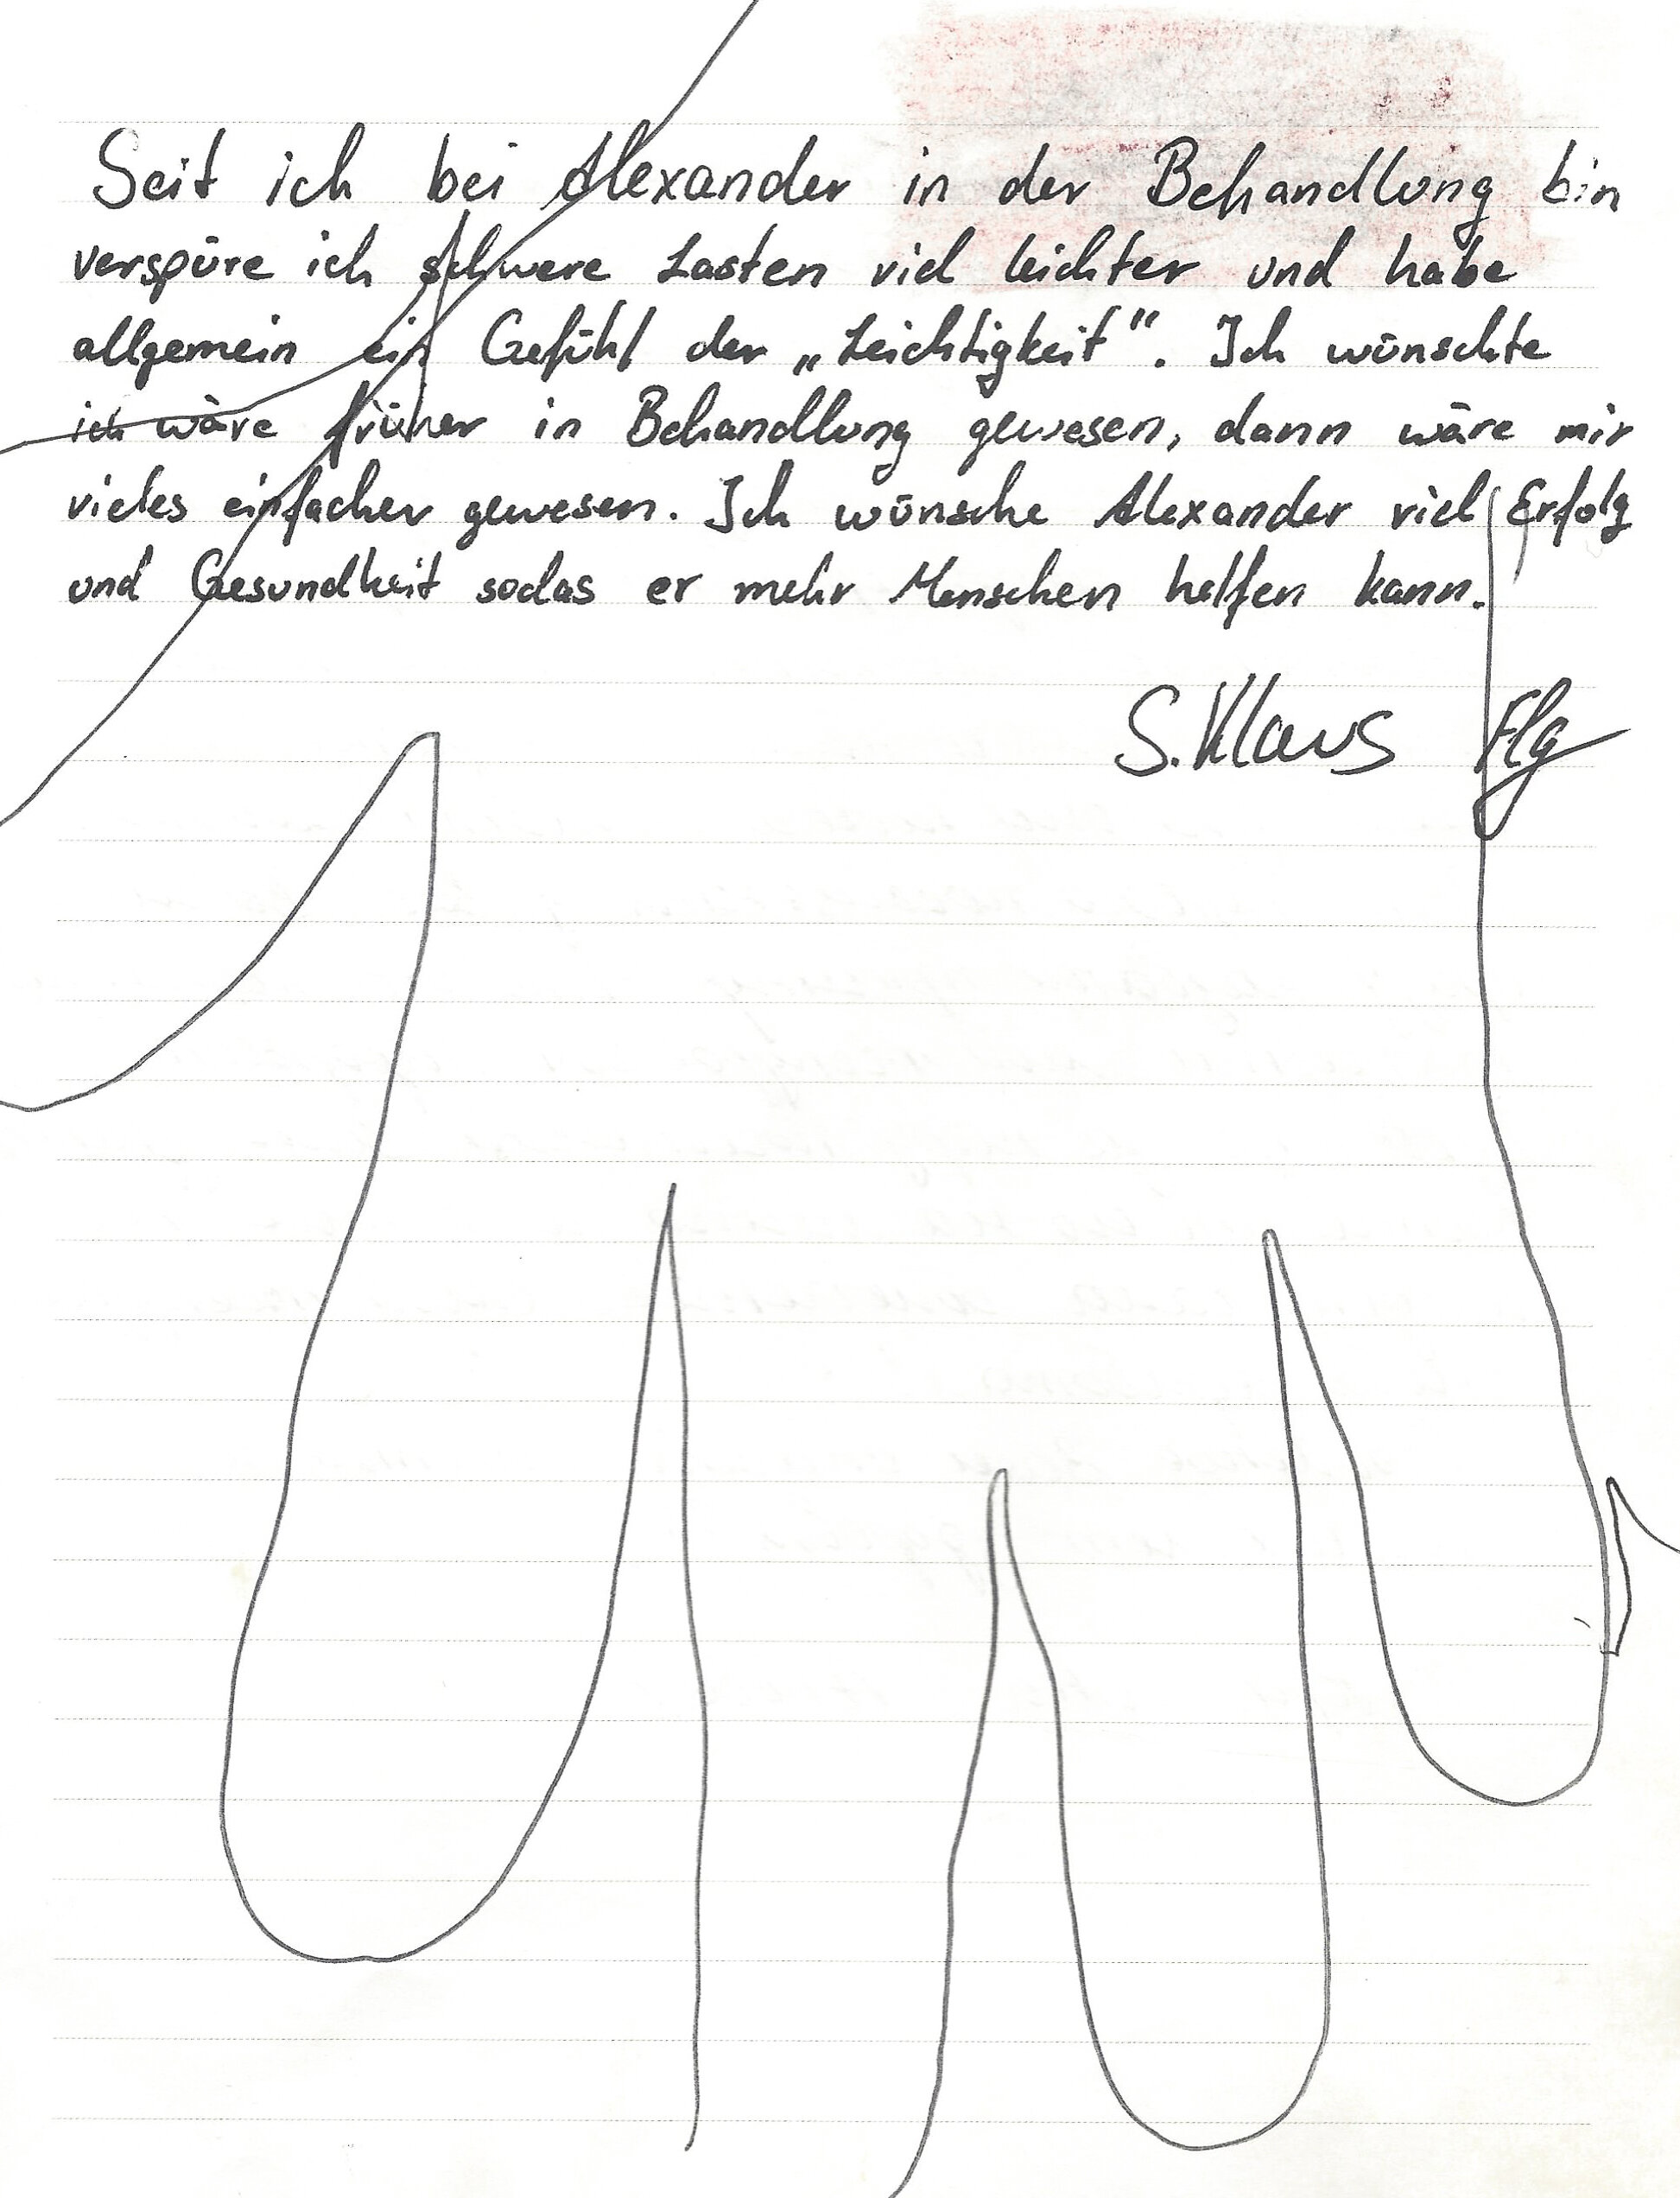 Seit ich bei Alexander in der Behandlung bin
verspüre ich schwere Lasten viel leichter und habe
allgemein ein Gefühl der „Leichtigkeit“. Ich wünschte
ich wäre früher in Behandlung gewesen, dann wäre mir
vieles einfacher gewesen. Ich wünsche Alexander viel Erfolg
und Gesundheit sodas er mehr Menschen helfen kann.
S. Klaus